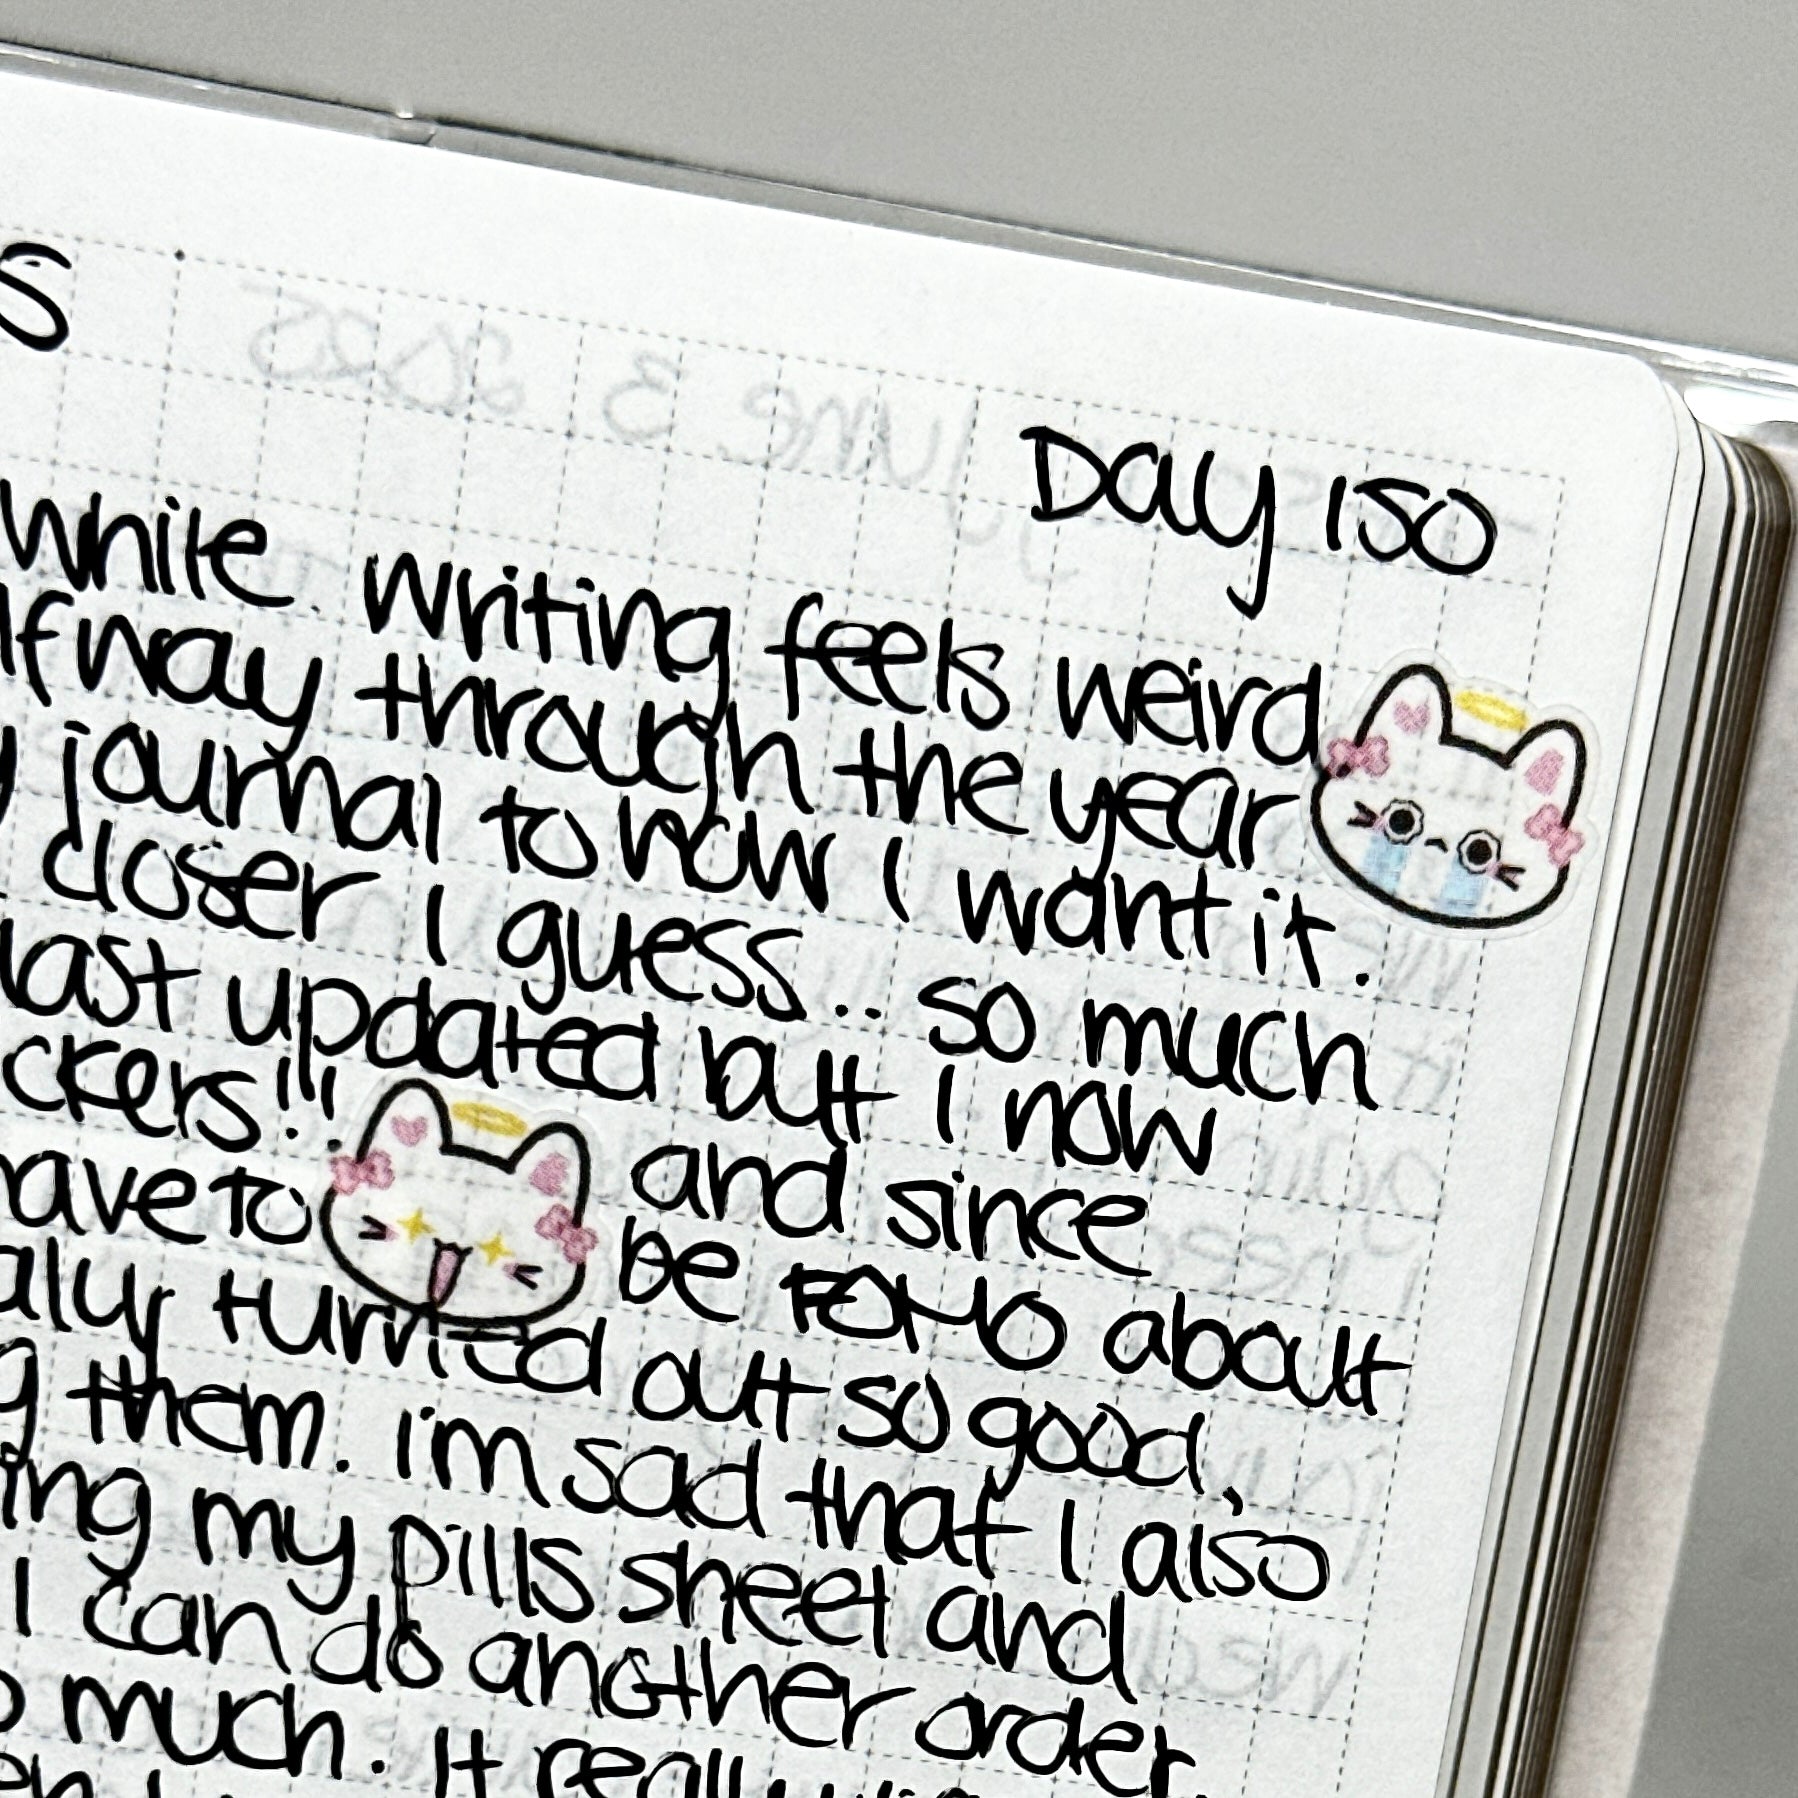 S
Day 150
while. writing feels weird
lfway through the year
y journal to how I want it.
closer I guess.. so much
last updated but I now
ckers!!! and since
have to be FOMO about
ally turned out so good,
g them. I'm sad that I also
ing my pills sheet and
I can do another order
o much. It really